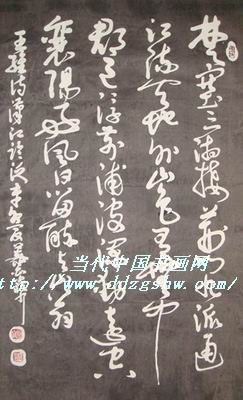 楚塞三湘接荆门九派通
江流天地外山色有无中
郡邑浮前浦波澜动远空
襄阳好风日留醉与山翁
王维诗汉江临泛
当代中国书画网
www.ddzgshw.com